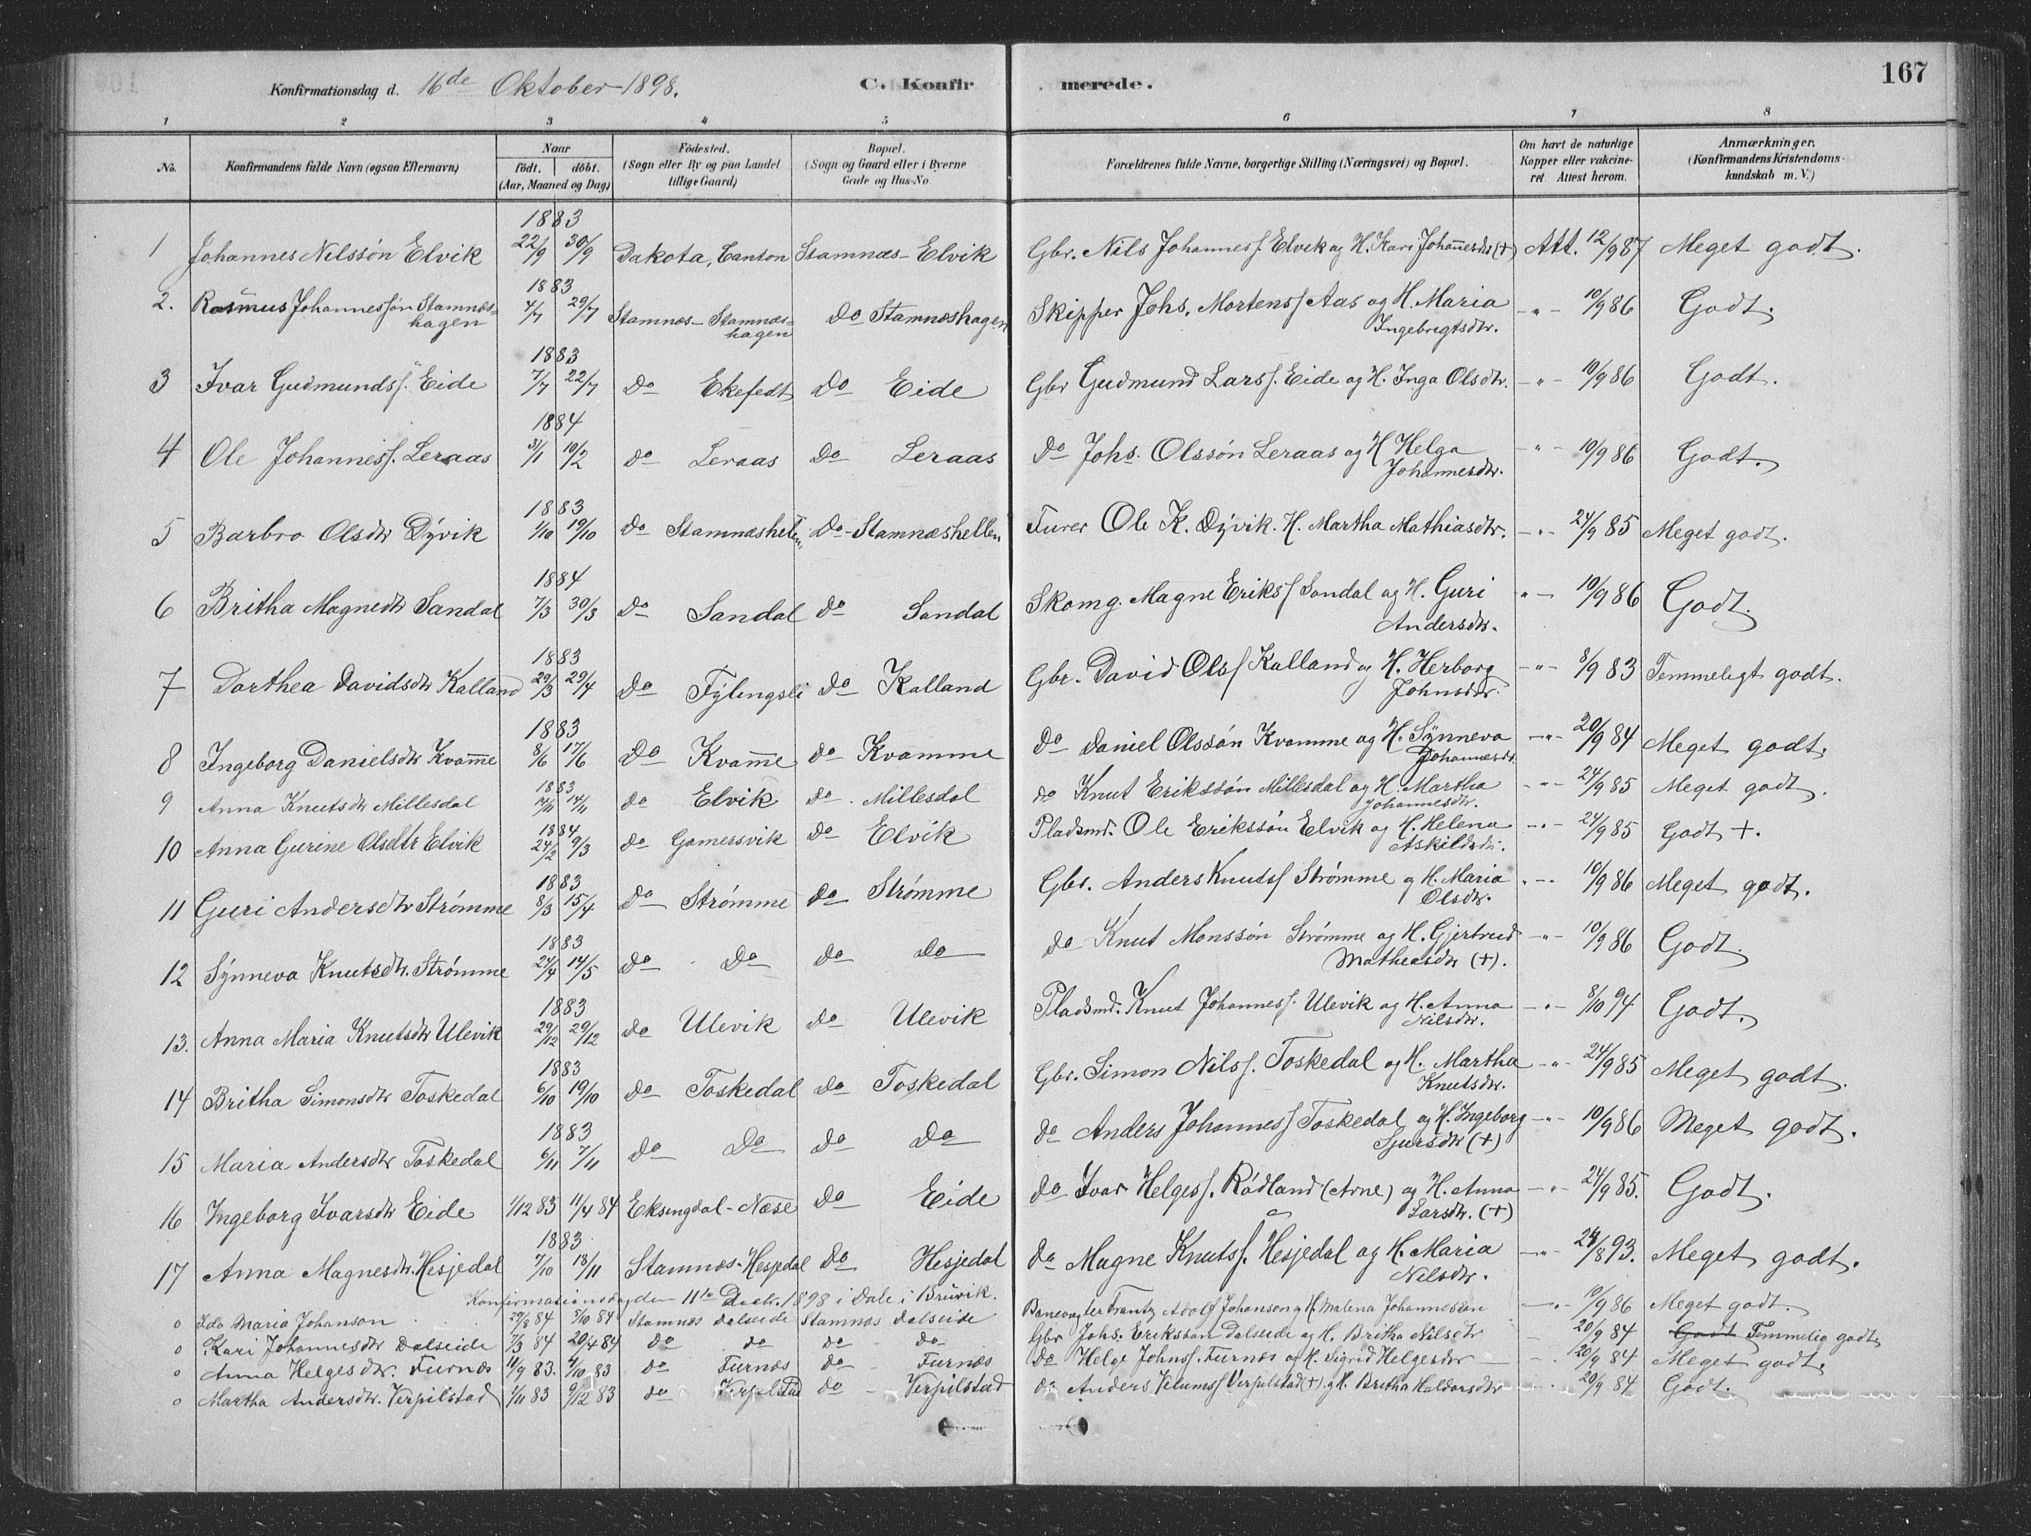 Konfirmationsdag d. 16de Oktober 1898. C. Konfirmerede. 167
1 2 3 4 5 6 7 8
No. Konfirmandens fulde Navn (ogsaa Efternavn) Naar født. døbt. (Aar, Maaned og Dag) Fødested. (Sogn eller By og paa Landet tillige Gaard) Bopæl. (Sogn og Gaard eller i Byerne Gade og Hus-No Forældrenes fulde Navne, borgerlige Stilling (Næringsvei) og Bopæl. Om havt de naturlige Kopper eller vaccineret. Attest herom. Anmærkninger. (Konfirmandens Kristendomskundskab m. V.)
1 Johannes Nilssøn Elvik 1883 22/9 30/9 Dakota, Canton Stamnæs - Elvik Gbr. Nils Johanness. Elvik og H. Kari Johannesdtr (+) Att. 12/9 87 Meget godt.
2. Rasmus Johannessøn Stamnæshagen 1883 4/7 29/7 Stamnæs - Stamnæshagen do Stamnæshagen Skipper Johs. Mortens. Aas og H. Maria Ingebrigtsdtr. - " - 10/9 86 Godt.
3 Ivar Gudmunds. Eide 1883 7/7 22/7 do Ekefedt do Eide Gbr Gudmund Lars. Eide og H. Inga Olsdtr. - " - 10/9 86 Godt.
4 Ole Johanness. Leraas 1884 3/1 10/2 do Leraas do Leraas do Johs. Olssøn Leraas og H Helga Johannesdtr. - " - 10/9 86 Godt.
5 Barbro Olsdtr Dÿvik 1883 1/10 19/10 do Stamnæshellen do - Stamnæshellen Furer Ole K. Dÿvik. H. Martha Mathiasdtr. - " - 24/9 85 Meget godt.
6 Britha Magnedtr Sandal 1884 7/3 30/3 do Sandal do Sandal Skomg. Magne Eriks. Sandal og H. Guri Andersdtr. " - 10/9 86 Godt.
7 Dorthea Davidsdtr Kalland 1883 29/3 29/4 do Fÿlingsli do Kalland Gbr. David Ols. Kalland og H. Herborg Johnsdtr. - " - 8/9 83 Temmeligt godt.
8 Ingeborg Danielsdtr Kvam̅e 1883 8/6 17/6 do Kvam̅e do Kvamme do Daniel Olssøn Kvamme og H. Sÿnneva Johannesdtr - " - 20/9 84 Meget godt.
9 Anna Knutsdtr Millesdal 1883 14/11 do Elvik do. Millesdal do Knut Erikssøn Millesdal og H. Martha Johannesdtr. - " - 24/9 85 Meget godt.
10 Anna Gurine Olsdtr Elvik 1884 24/2 9/3 do Gamersvik do Elvik Pladsmd. Ole Erikssøn Elvik og H. Helena Askildsdtr. - " - 24/9 85 Godt +.
11 Guri Andersdtr Strømme 1883 8/3 15/4 do Strømme do Strømme Gbr. Anders Knuts. Strømme og H. Maria Olsdtr. " - 10/9 86 Meget godt.
12 Sÿnneva Knutsdtr. Strømme 1883 24/4 14/5 do do do do do Knut Monssøn Strømme og H. Gjertrud Matheasdtr (+). - " - 10/9 86 Godt.
13. Anna Maria Knutsdtr Ulevik 1883 29/12 29/12 do Ulevik do Ulevik Pladsmd. Knut Johanness. Ulevik og H. Anna Nilsdtr. - " - 8/10 94 Godt.
14 Britha Simonsdtr Toskedal 1883 6/10 19/10 do Toskedal do Toskedal Gbr. Simon Nils. Toskedal og H. Martha Knutsdtr. - " - 24/9 85 Meget godt.
15 Maria Andersdtr Toskedal 1883 6/11 7/11 do do do do do Anders Johanness. Toskedal og H. Ingeborg Sjursdtr (+) - " - 10/9 86 Meget godt.
16 Ingeborg Ivarsdtr Eide 1/12 83 11/4 84 Eksingdal - Næse do Eide do Ivar Helges. Rødland (Arne) og H. Anna Larsdtr. (+) - " - 24/9 85. Godt.
17 Anna Magnesdtr. Hesjedal 1883 7/10 18/11 Stamnæs - Hesjedal do Hesjedal do Magne Knuts. Hesjedal og H. Maria Nilsdtr. - " - /8 93. Meget godt.
Konfirmationsdag den 11te Decbr. 1898 i Dale i Bruvik.
o Ida Maria Johanson 29/8 84 5/10 84 Stamnæs Dalseide Stamnæs Dalseide Banevogter Frantz Adolf Johanson og H. Malena Johannessen - " - 10/9 86 Meget godt.
o Kari Johannesdtr Dalseide 7/3 84 20/4 84 do do do do Gbr Johs. Erikssøn Dalseide og H. Britha Nilsdtr - 20/9 84 Godt Temmelig godt.
o Anna Helgesdtr. Furnæs 11/9 83. /10 83 do Furnæs do Furnæs do Helge Johns. Furnæs og H. Sigrid Helgesdtr - 20/9 84 Meget godt.
o Martha Andersdtr. Verpilstad 1/11 83 9/12 83 do Verpilstad do Verpilstad do Anders Verpilstad (+) og H. Britha Haldorsdtr 20/9 84 Godt.